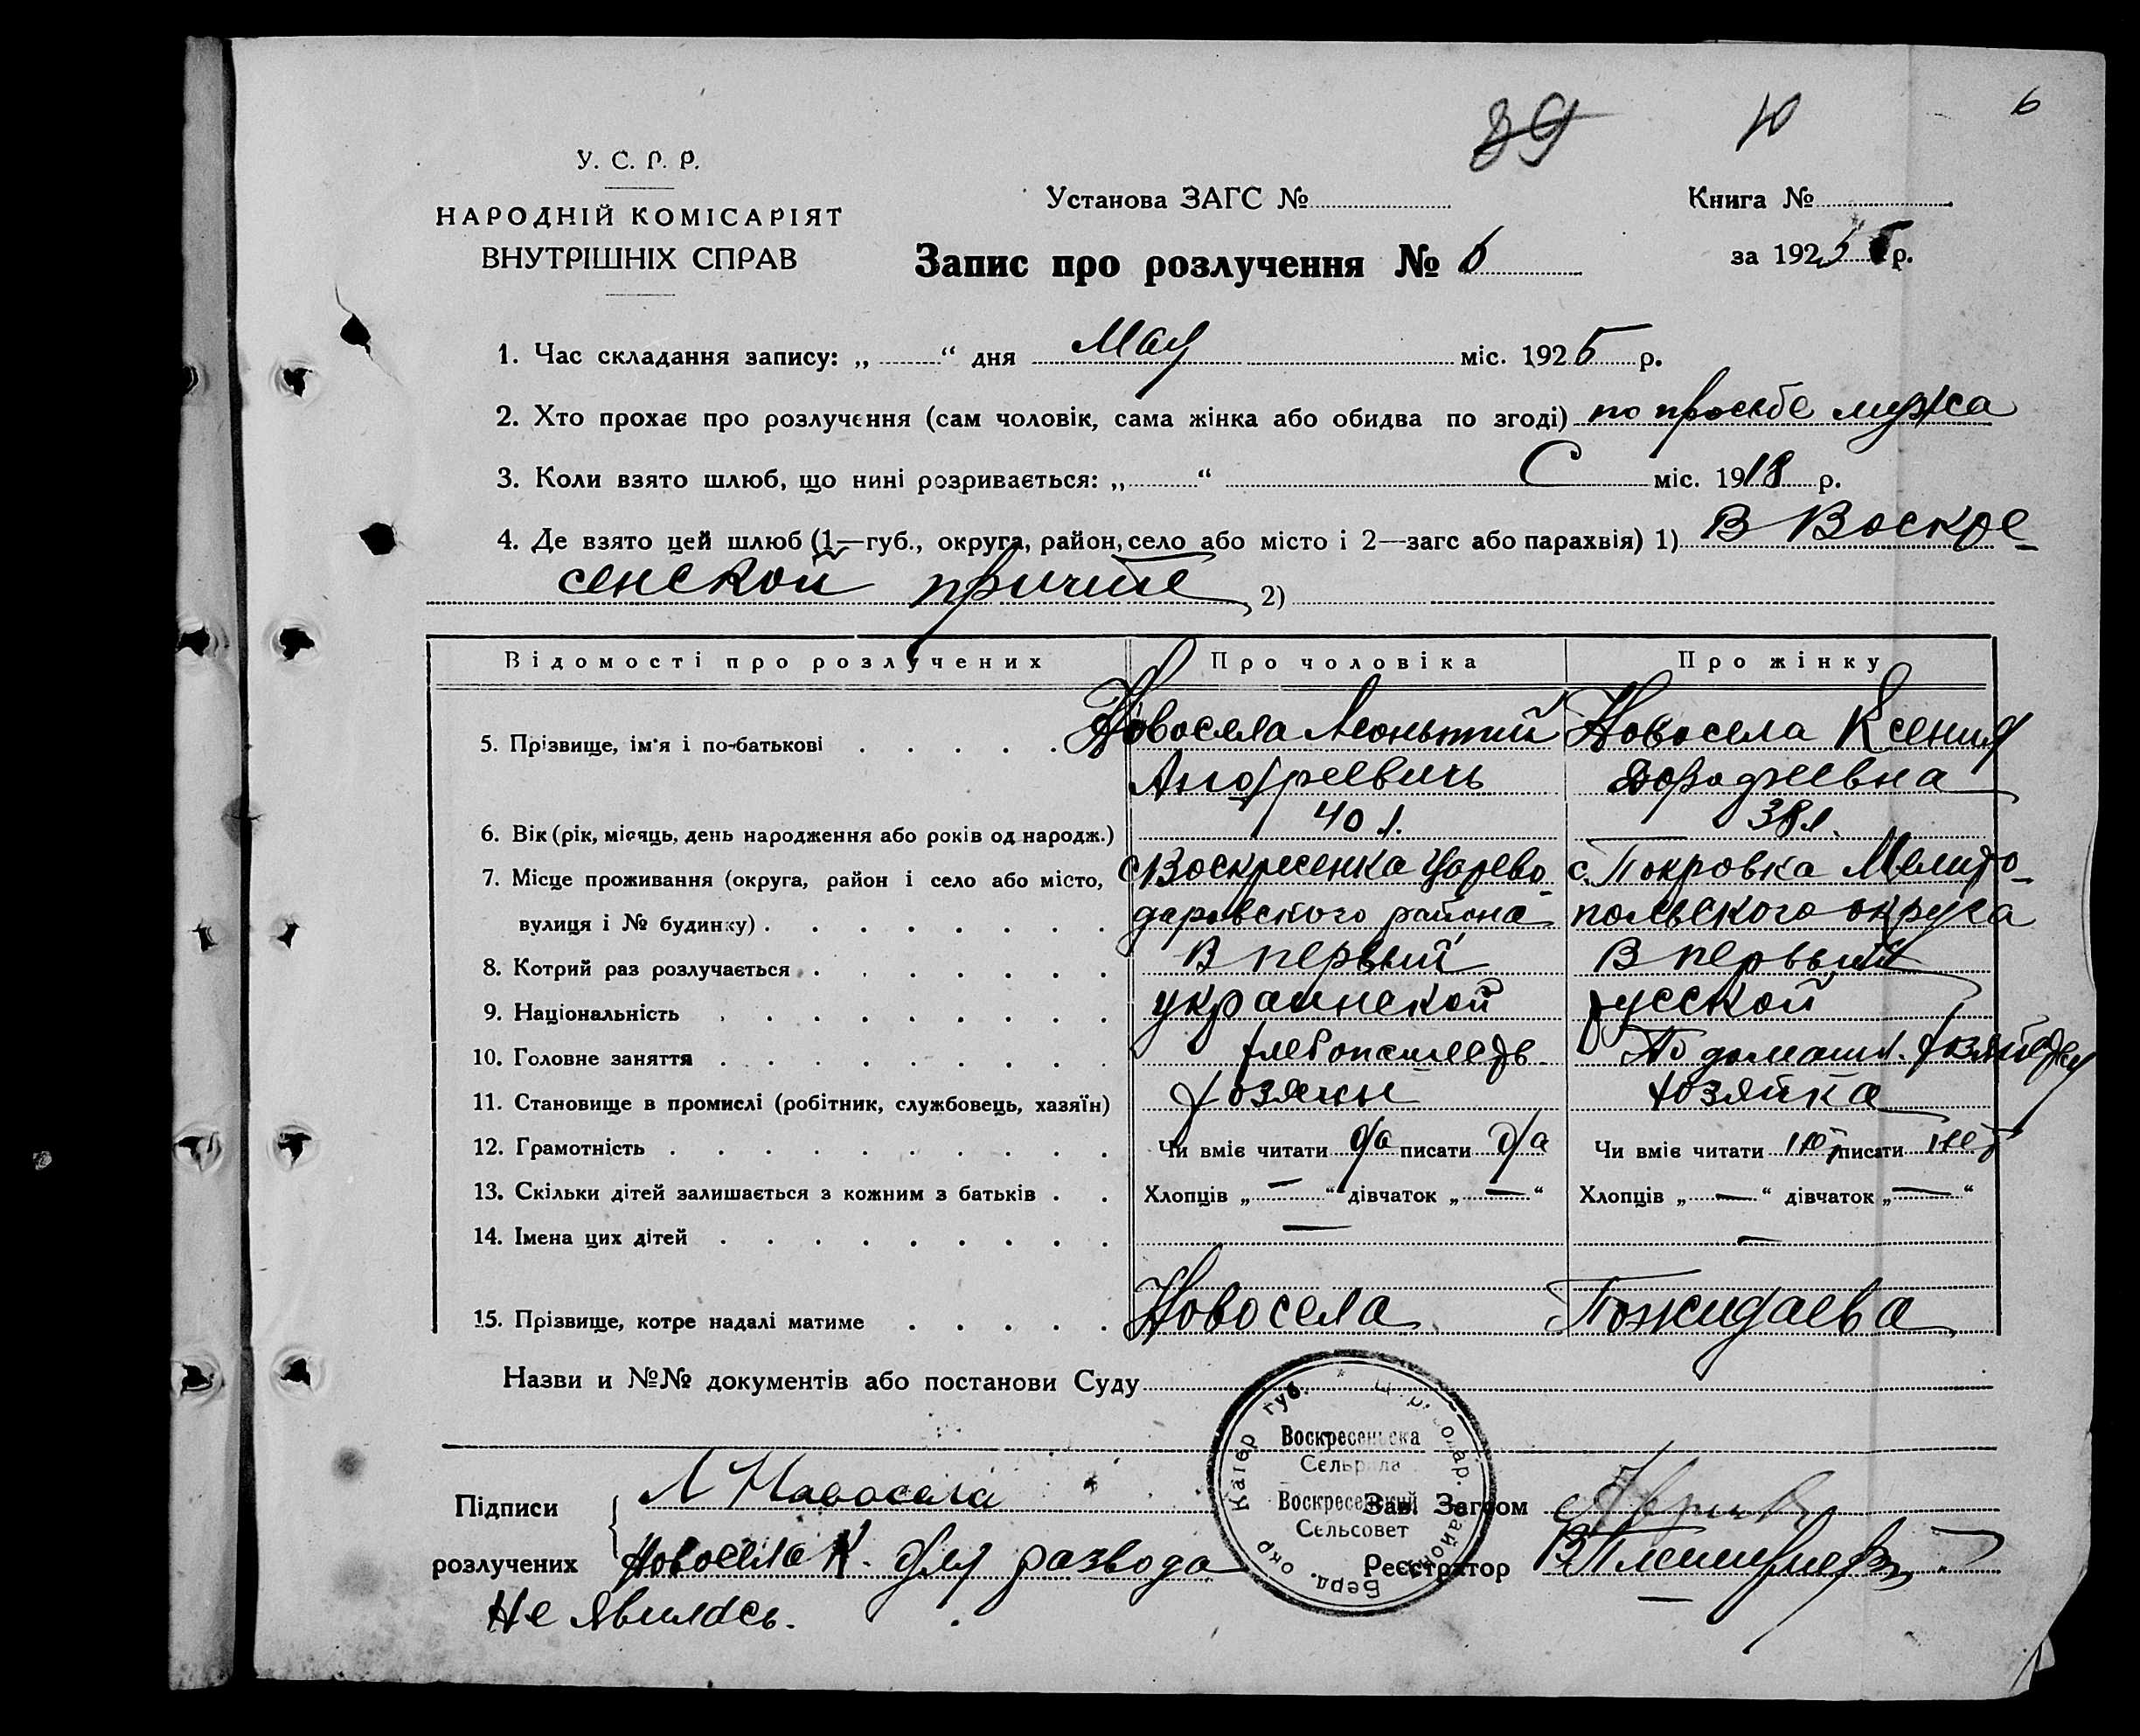 39 10 6
У. С. Р. Р.
НАРОДНІЙ КОМІСАРІЯТ
ВНУТРІШНІХ СПРАВ
Установа ЗАГС №
Книга №
за 1925 р.
Запис про розлучення № 6
1. Час складання запису: „ “ дня Мая міс. 1925 р.
2. Хто прохає про розлучення (сам чоловік, сама жінка або обидва по згоді) по просьбе мужа
3. Коли взято шлюб, що нині розривається: „ “ С міс. 1918 р.
4. Де взято цей шлюб (1—губ., округа, район, село або місто і 2—загс або парахвія) 1) В Воскре-
сенской причте 2)
Відомості про розлучених Про чоловіка Про жінку
5. Прізвище, ім'я і по-батькові Новосела Леоньтий Новосела Ксения
Андреевичь
6. Вік (рік, місяць, день народження або років од народж.) 40 л. 38 л.
7. Місце проживання (округа, район і село або місто, с Воскресенка Царево- с. Покровка Мелито-
вулиця і № будинку) даровского района польского округа
8. Котрий раз розлучається В первый В первый
9. Національність украинской русской
10. Головне заняття хлебопашедь По домашн.
11. Становище в промислі (робітник, службовець, хазяїн) хозяин хозяйка
12. Грамотність Чи вміє читати да писати да Чи вміє читати нет писати нет
13. Скільки дітей залишається з кожним з батьків Хлопців „ — “ дівчаток „ — “ Хлопців „ — “ дівчаток „ — “
14. Імена цих дітей — —
15. Прізвище, котре надалі матиме Новосела Пожидаева
Назви и №№ документів або постанови Суду
Катер губ. Берд. окр
Воскресенська
Сельрада
Воскресенский
Сельсовет
Підписи Л Новосела
Зав. Загсом
розлучених Новосела К. для развода
Реєстратор
Не явилась.